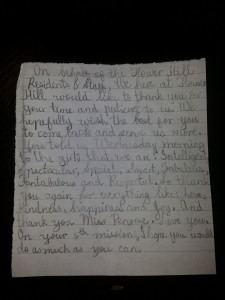 On behalf of the Flower Hill
Residents & Staff. We here at Flower
Hill would like to thank you for
your time and patience to us. We
hopefully wish the best for you
to come back and serve us more.
You told us Wednesday morning
to the girls that we are Intelligent
Spectacular, Special, Smart, Fabulous,
Fantabulous and Respectful, so thank
you again for everything like love,
kindness, happiness and Joy. And
thank you Miss I love you.
On your mission, I hope you would
do as much as you can.